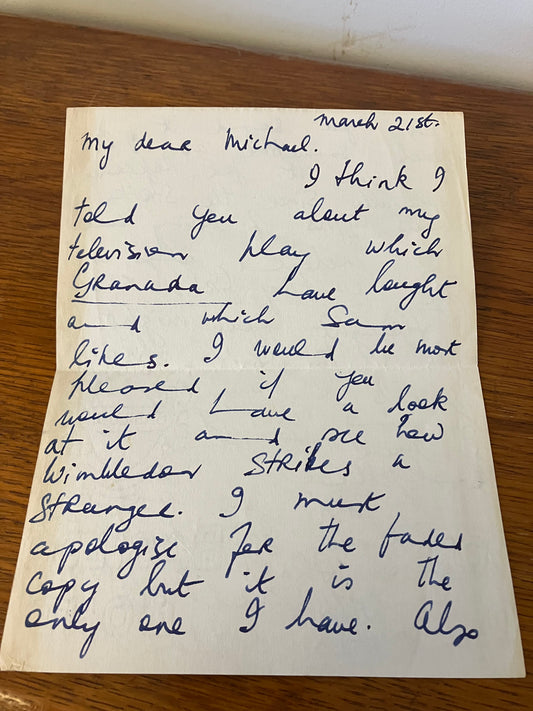 March 21st.
My dear Michael.
I think I
told you about my
television play which
Granada have bought
and which Sam
likes. I would be most
pleased if you
would have a look
at it and see how
Wimbledon strikes a
stranger. I must
apologise for the faded
copy but it is the
only one I have. Also